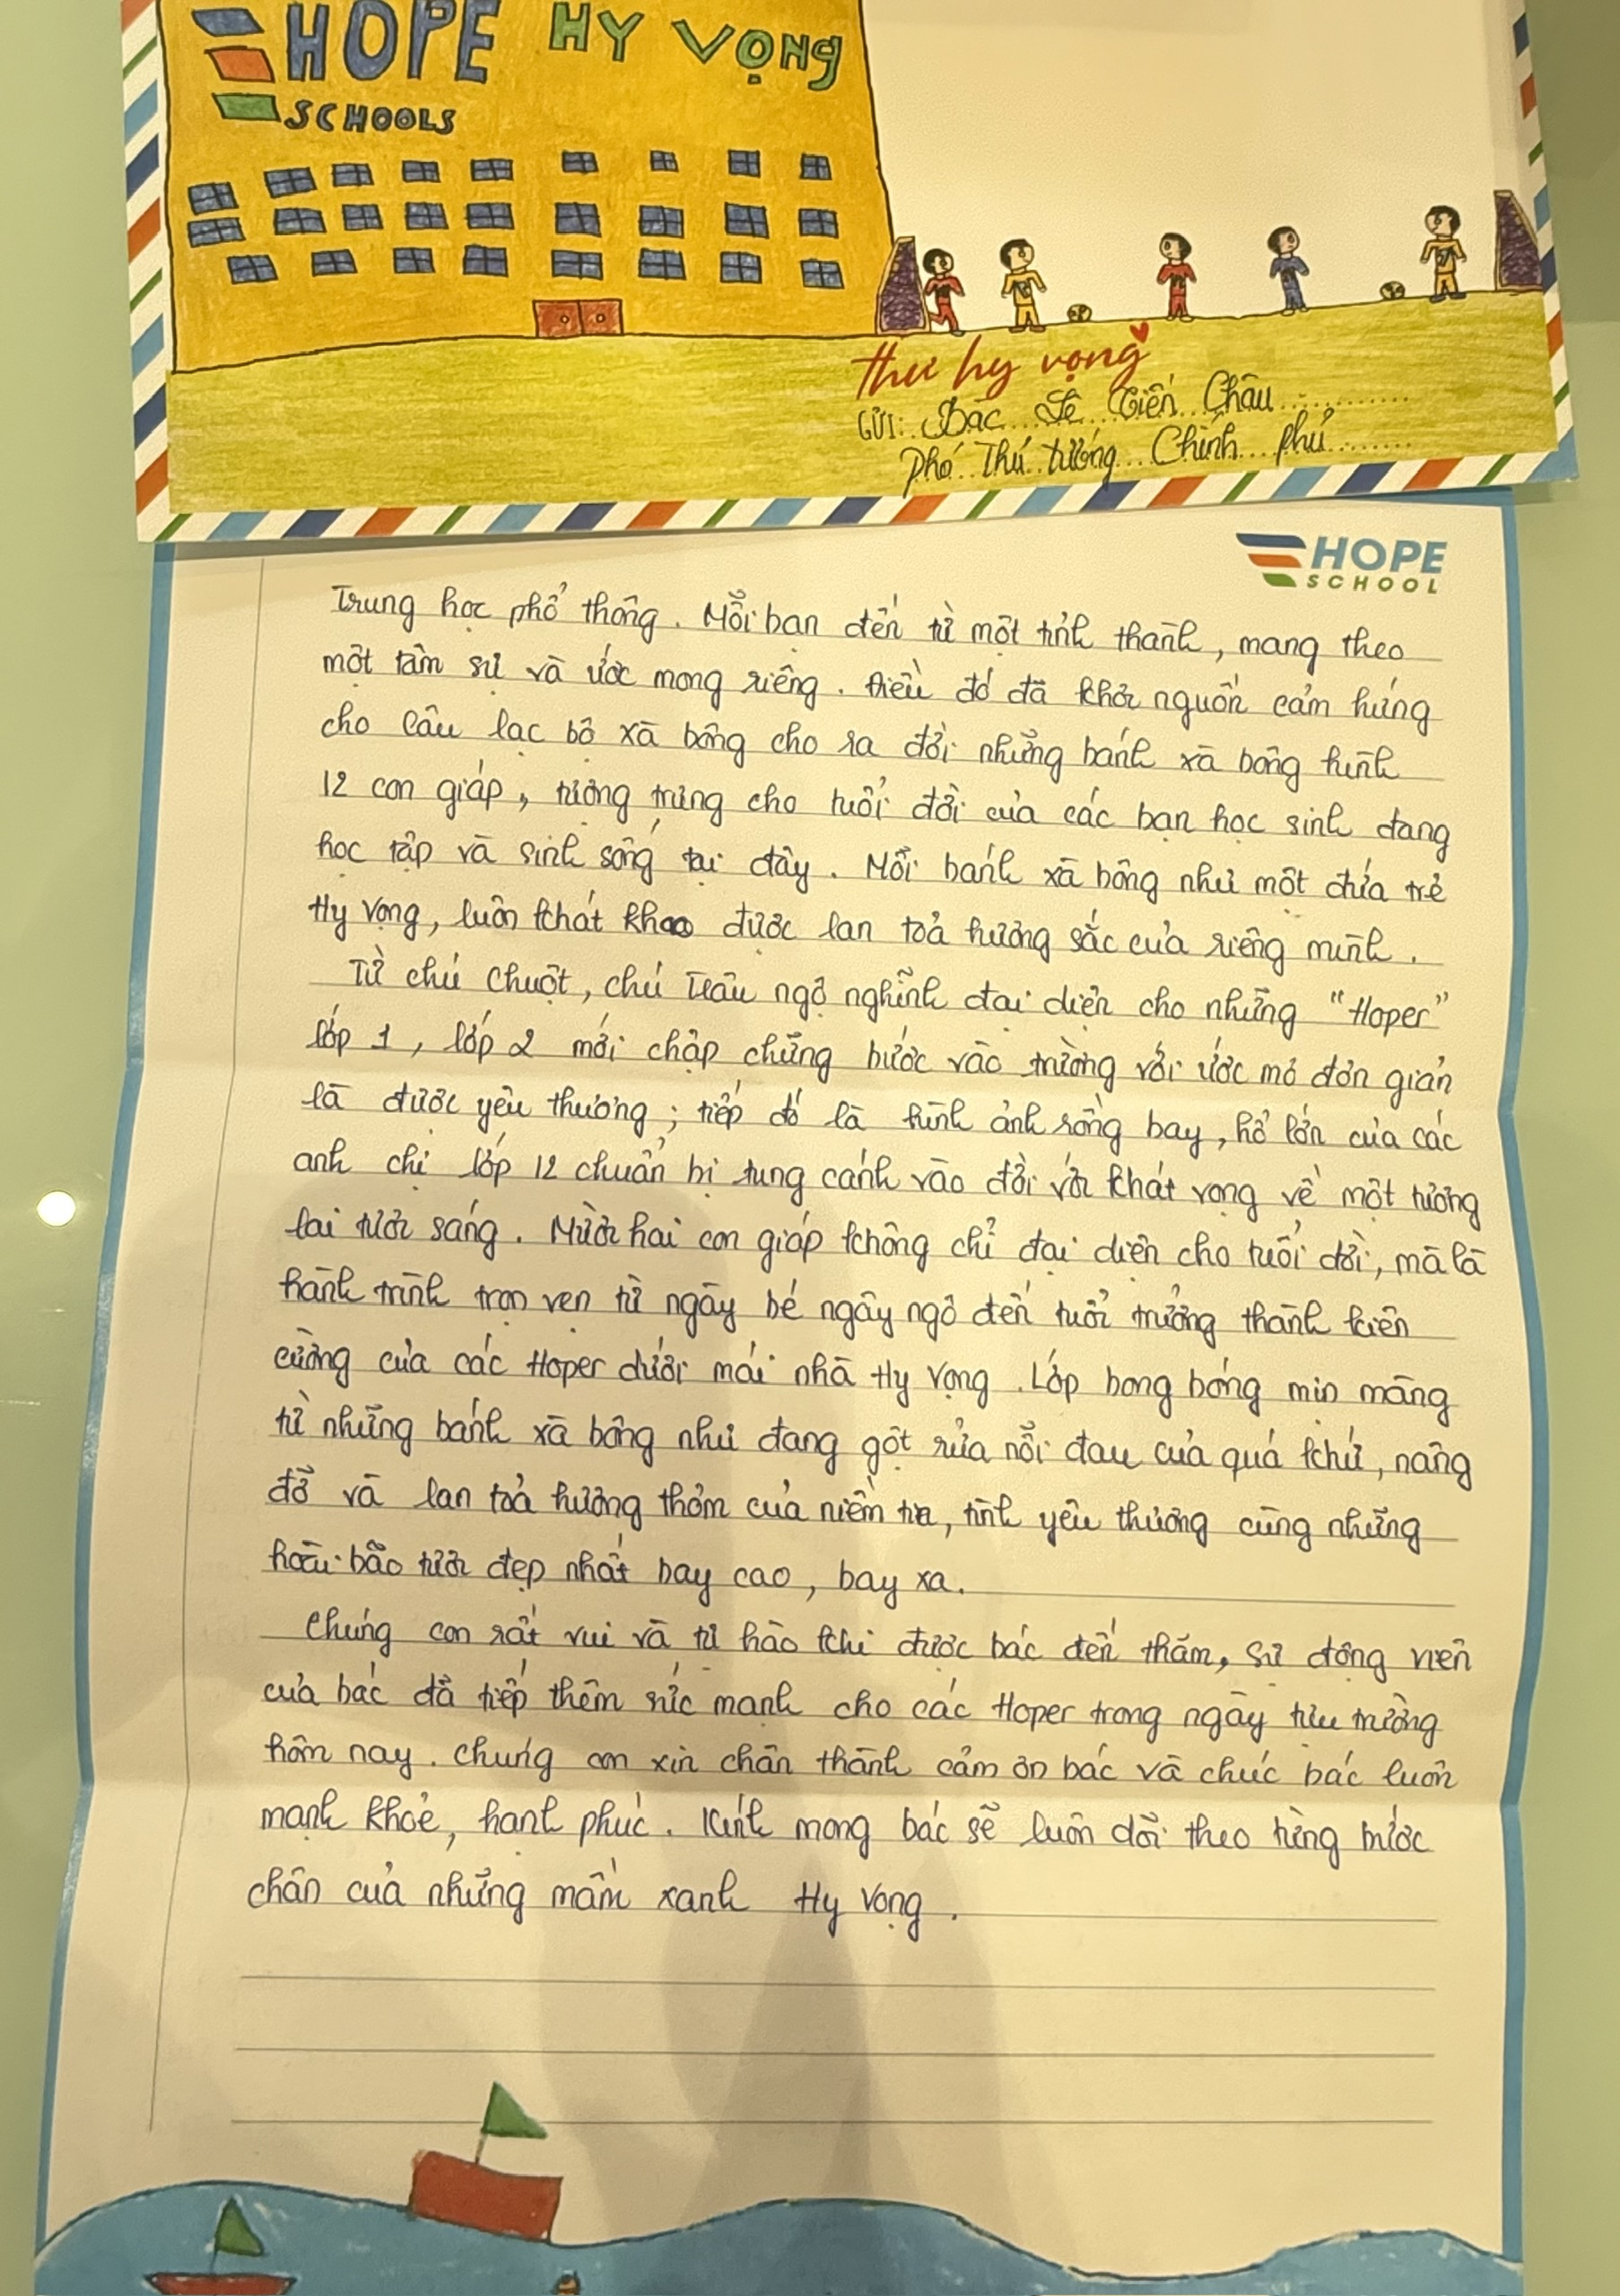 HOPE HY VỌNG
SCHOOLS
thư hy vọng
GỬI: Bác Lê Tiến Châu
Phó Thủ tướng Chính phủ
HOPE
SCHOOL
Trung học phổ thông. Mỗi bạn đến từ một tỉnh thành, mang theo
một tâm sự và ước mong riêng. Điều đó đã khơi nguồn cảm hứng
cho câu lạc bộ xà bông cho ra đời những bánh xà bông hình
12 con giáp, tượng trưng cho tuổi đời của các bạn học sinh đang
học tập và sinh sống tại đây. Mỗi bánh xà bông như một đứa trẻ
Hy Vọng, luôn khát khao được lan toả hương sắc của riêng mình.
Từ chú Chuột, chú Trâu ngộ nghĩnh đại diện cho những "Hoper"
lớp 1, lớp 2 mới chập chững bước vào trường với ước mơ đơn giản
là được yêu thương; tiếp đó là hình ảnh rồng bay, hổ lớn của các
anh chị lớp 12 chuẩn bị tung cánh vào đời với khát vọng về một tương
lai tươi sáng. Mười hai con giáp không chỉ đại diện cho tuổi đời, mà là
hành trình trọn vẹn từ ngây bé ngây ngô đến tuổi trưởng thành kiên
cường của các Hoper dưới mái nhà Hy Vọng. Lớp bong bóng mịn màng
từ những bánh xà bông như đang gột rửa nỗi đau của quá khứ, nâng
đỡ và lan toả hương thơm của niềm tin, tình yêu thương cùng những
hoài bão tươi đẹp nhất bay cao, bay xa.
Chúng con rất vui và tự hào khi được bác đến thăm, sự động viên
của bác đã tiếp thêm sức mạnh cho các Hoper trong ngày tựu trường
hôm nay. Chúng con xin chân thành cảm ơn bác và chúc bác luôn
mạnh khỏe, hạnh phúc. Kính mong bác sẽ luôn dõi theo từng bước
chân của những mầm xanh Hy Vọng.